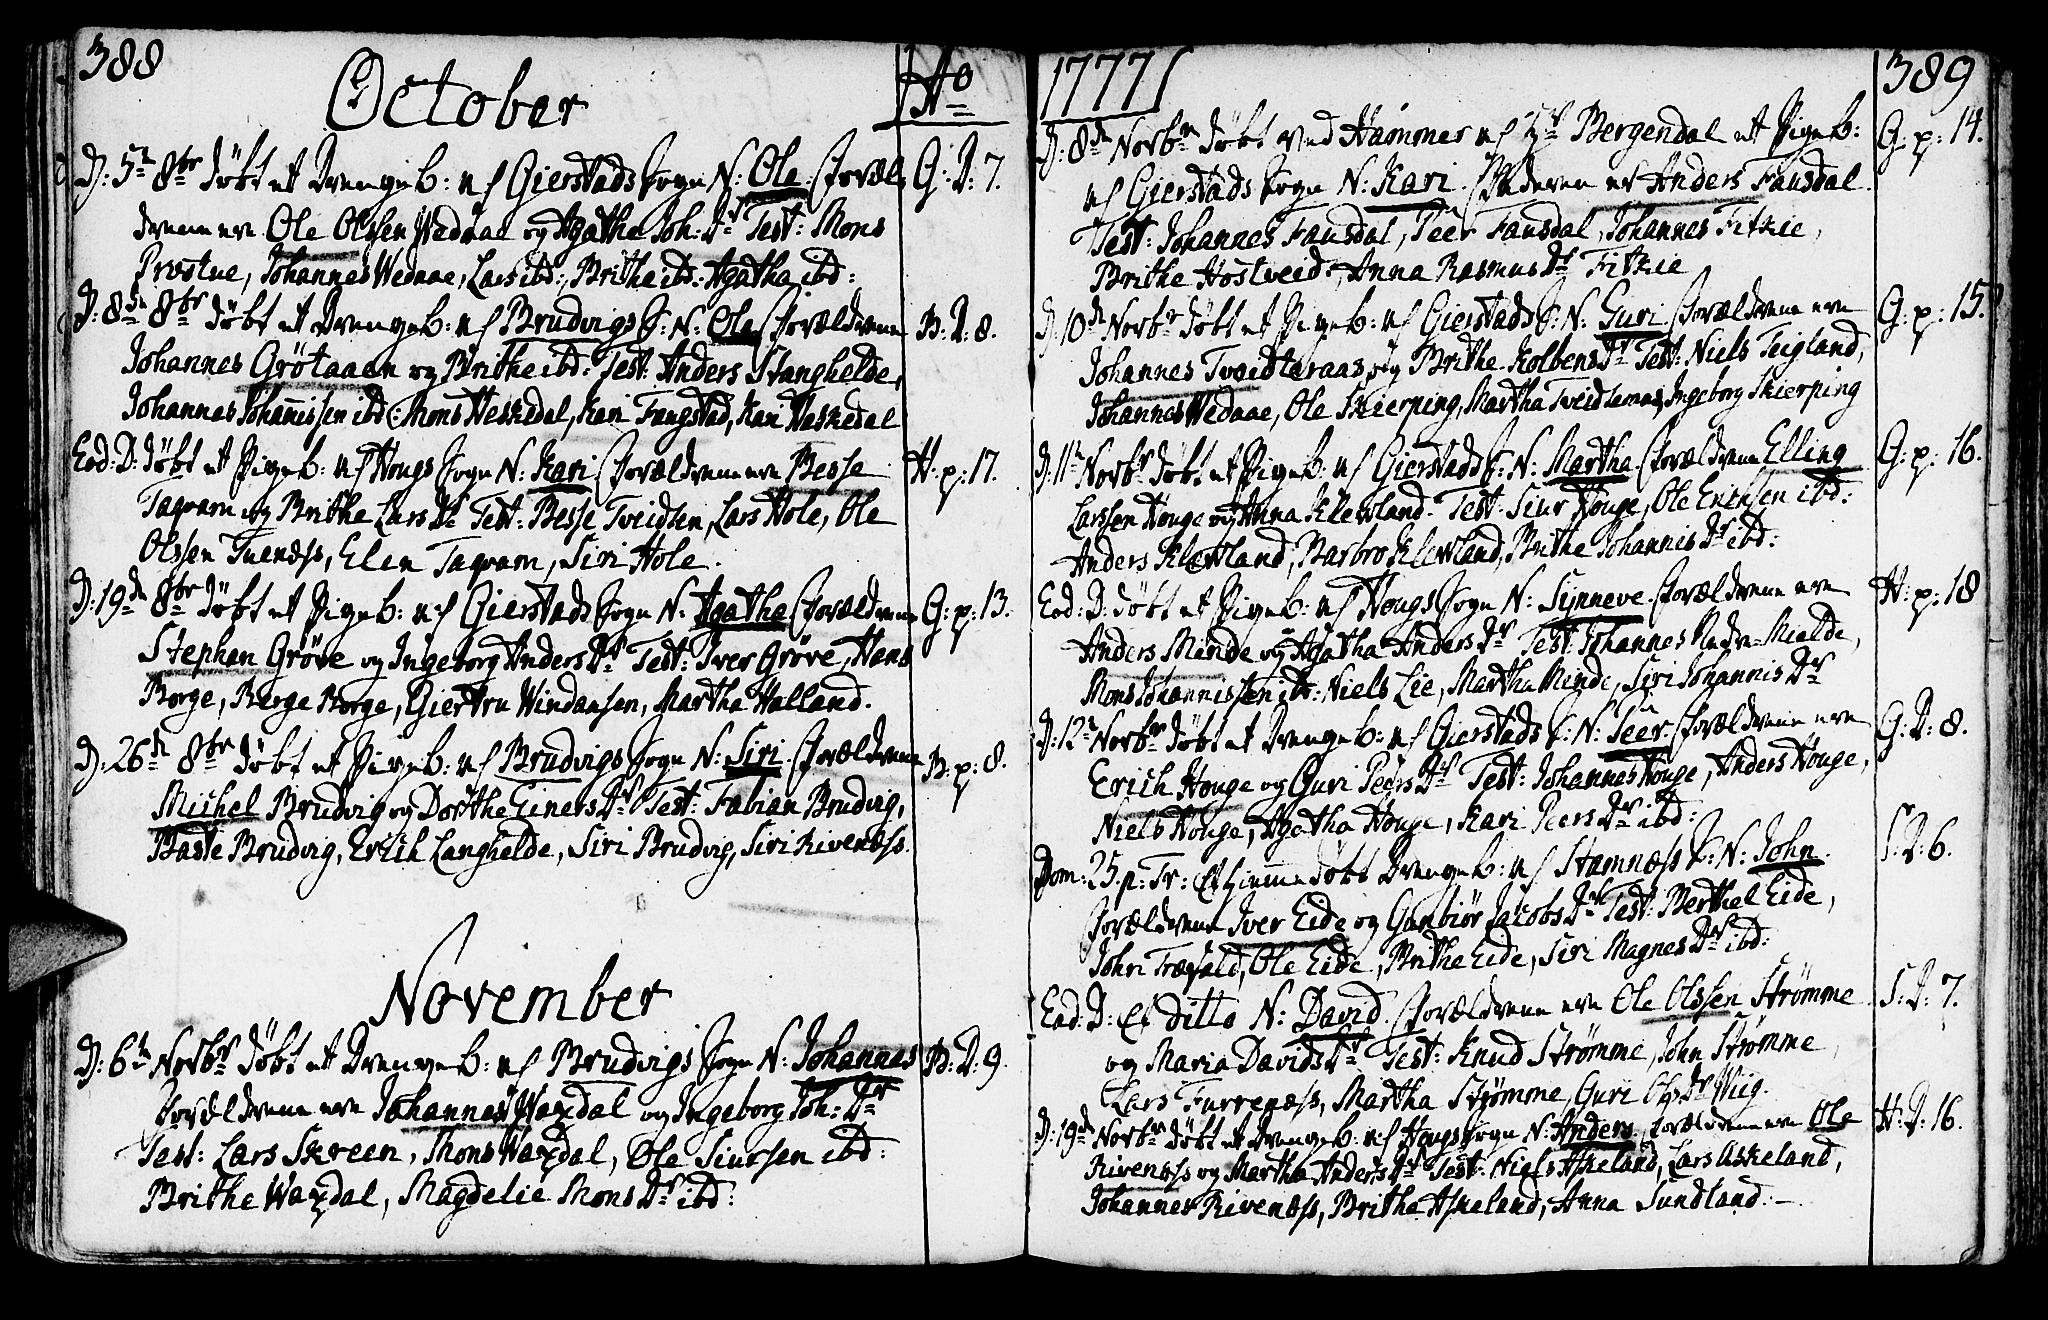 388
October
Ao
D: 5te 8br döbt et Drengeb: af Gierstads Sogn N: Ole. Foræl- G: D: 7.
drene ere Ole Olssen Wedaae og Agatha Joh: Dr Test: Mons
Præstue, Johannes Wedaae, Lars ibd:, Brithe ibd: Agatha ibd:
D: 8de 8br döbt et Drengeb: af Brudvigs S: N: Ole Forældrene B: D: 8.
Johannes Grötaaen og Brithe ibd: Test: Anders Stanghelde,
Johannes Johannissen ibd: Mons Heskedal, Kari Fangstad, Kari Heskedal
Eod: D: döbt et Pigeb: af Hougs Sogn N: Kari Forældrene ere Besse H: p: 17.
Taqvam og Brithe Lars Dr Test: Besse Tveidten, Lars Hole, Ole
Olssen Tuenæss, Elen Taqvam, Siri Hole.
D: 19de 8br döbt et Pigeb: af Gierstads Sogn N: Agatha Forældrene G: p: 13.
Stephen Gröve og Ingeborg Anders Dr Test: Iver Gröve, Hans
Borge, Berge Borge, Giertru Windansen, Martha Halland.
D: 26de 8br döbt et Pigeb: af Brudvigs Sogn N: Siri. Forældrene B: p: 8.
Michel Brudvig og Dorthe Einers Dr Test: Fabian Brudvig,
Baste Brudvig, Erich Langhelde, Siri Brudvig, Siri Rivenæss.
November
D: 6te Novbr döbt et Drengeb: af Brudvigs Sogn N: Johannes B: D: 9.
Forældrene ere Johannes Waxdal og Ingeborg Joh: Dr
Test: Lars Skreen, Mons Waxdal, Ole Siurssen ibd:
Brithe Waxdal, Magdelie Mons Dr ibd:
1777
389
D: 8de Novbr döbt ved Hammer af Hr Bergendal et Pigeb: G: p: 14.
af Gierstads Sogn N: Kari. Faderen er Anders Fausdal.
Test: Johannes Fausdal, Peer Fausdal, Johannes Fitkie,
Brithe Hostveid, Anna Rasmus Dr Fitkie
D: 10de Novbr döbt et Pigeb: af Gierstads S: N: Guri Forældrene ere G: p: 15.
Johannes Tveidteraas og Brithe Kolbens Dr Test: Niels Teigland,
Johannes Wedaae, Ole Skierping, Martha Tveidteraas, Ingeborg Skierping
D: 11te Novbr döbt et Pigeb: af Gierstads S: N: Martha. Forældrene Elling G: p: 16.
Larssen Houge og Anna Klewland. Test: Siur Houge, Ole Erichsen ibd:
Anders Klewland, Barbro Klewland, Brithe Johannis Dr ibd:
Eod: D: döbt et Pigeb: af Hougs Sogn N: Synneve. Forældrene ere H: p: 18
Anders Minde og Agatha Anders Dr Test: Johannes Nedre-Mielde,
Mons Johannissen ibd: Niels Lie, Martha Minde, Siri Johannis Dr
D: 12te Novbr döbt et Drengeb: af Gierstads S: N: Peer. Forældrene ere G: D: 8.
Erich Houge og Guri Peers Dr Test: Johannes Houge, Anders Houge,
Niels Houge, Agatha Houge, Kari Peers Dr ibd:
Dom: 25. p: Tr: Et hjemmedöbt Drengeb: af Stamnæss S: N: John. S: D: 6.
Forældrene Iver Eide og Gunbiör Jacobs Dr Test: Berthel Eide,
John Træfald, Ole Eide, Brithe Eide, Siri Magnes Dr ibd:
Eod: D: Et ditto N: David. Forældrene ere Ole Olssen Strømme S: D: 7.
og Maria Davids Dr Test: Knud Strømme, John Strømme,
Lars Furrenæss, Martha Strømme, Guri Ols Dr Wiig.
D: 19de Novbr döbt et Drengeb: af Hougs Sogn N: Anders, Forældrene ere Ole H: D: 16.
Rivenæss og Martha Anders Dr Test: Niels Askeland, Lars Askeland,
Johannes Rivenæss, Brithe Askeland, Anna Sundland. –